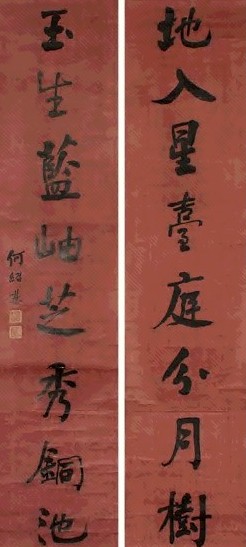 地入星臺庭分月樹
玉生藍岫芝秀銅池
何紹基